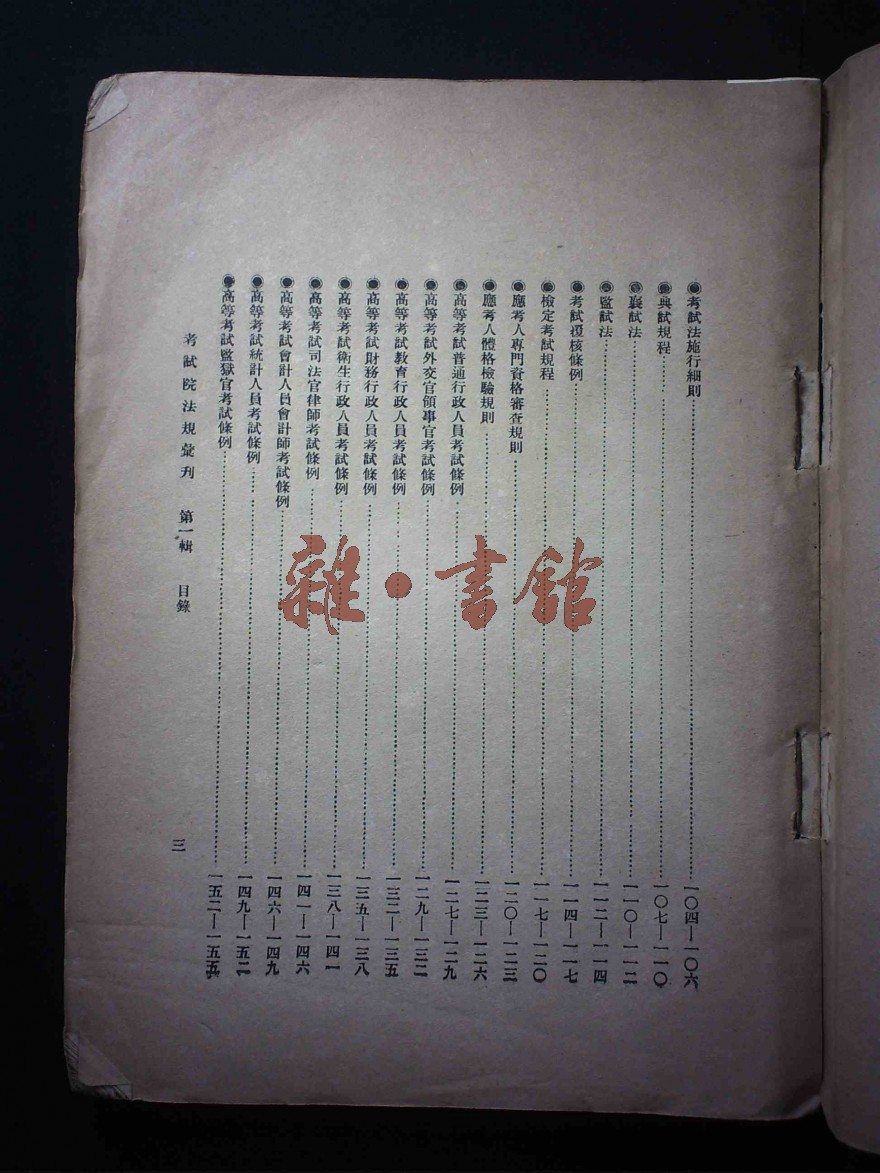 考試法施行細則……一〇四—一〇六
典試規程……一〇七—一一〇
襄試法……一一〇—一一二
監試法……一一二—一一四
考試覆核條例……一一四—一一七
檢定考試規程……一一七—一二〇
應考人專門資格審查規則……一二〇—一二三
應考人體格檢驗規則……一二三—一二六
高等考試普通行政人員考試條例……一二七—一二九
高等考試外交官領事官考試條例……一二九—一三二
高等考試教育行政人員考試條例……一三二—一三五
高等考試財務行政人員考試條例……一三五—一三八
高等考試衛生行政人員考試條例……一三八—一四一
高等考試司法官律師考試條例……一四一—一四六
高等考試會計人員會計師考試條例……一四六—一四九
高等考試統計人員考試條例……一四九—一五二
高等考試監獄官考試條例……一五二—一五五
考試院法規彙刊 第一輯 目錄 三
雜·書館